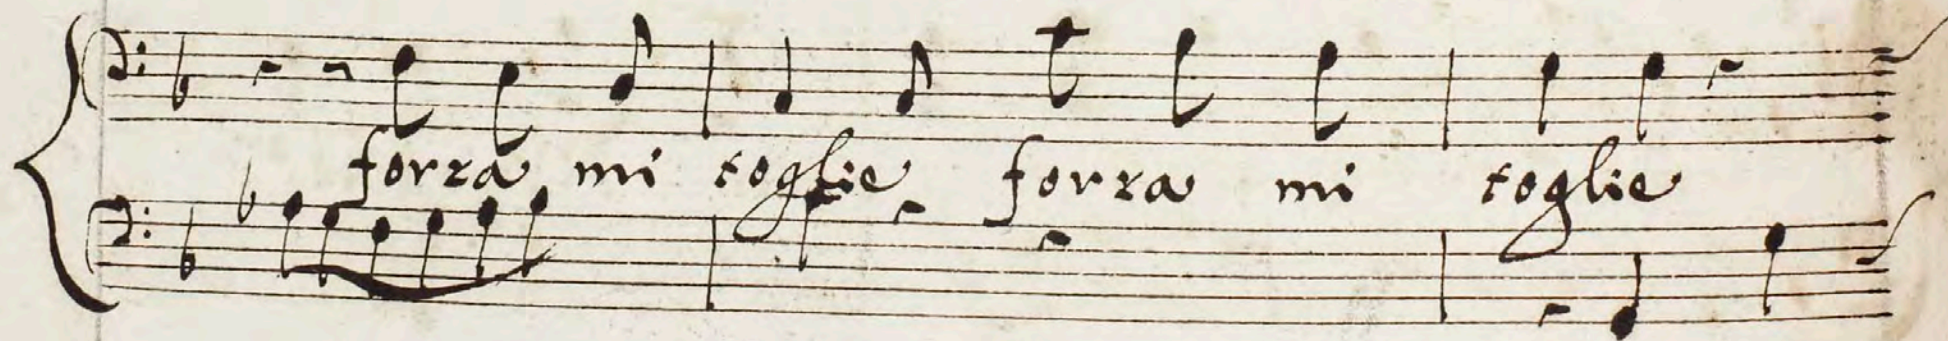 forza mi toglie forza mi toglie